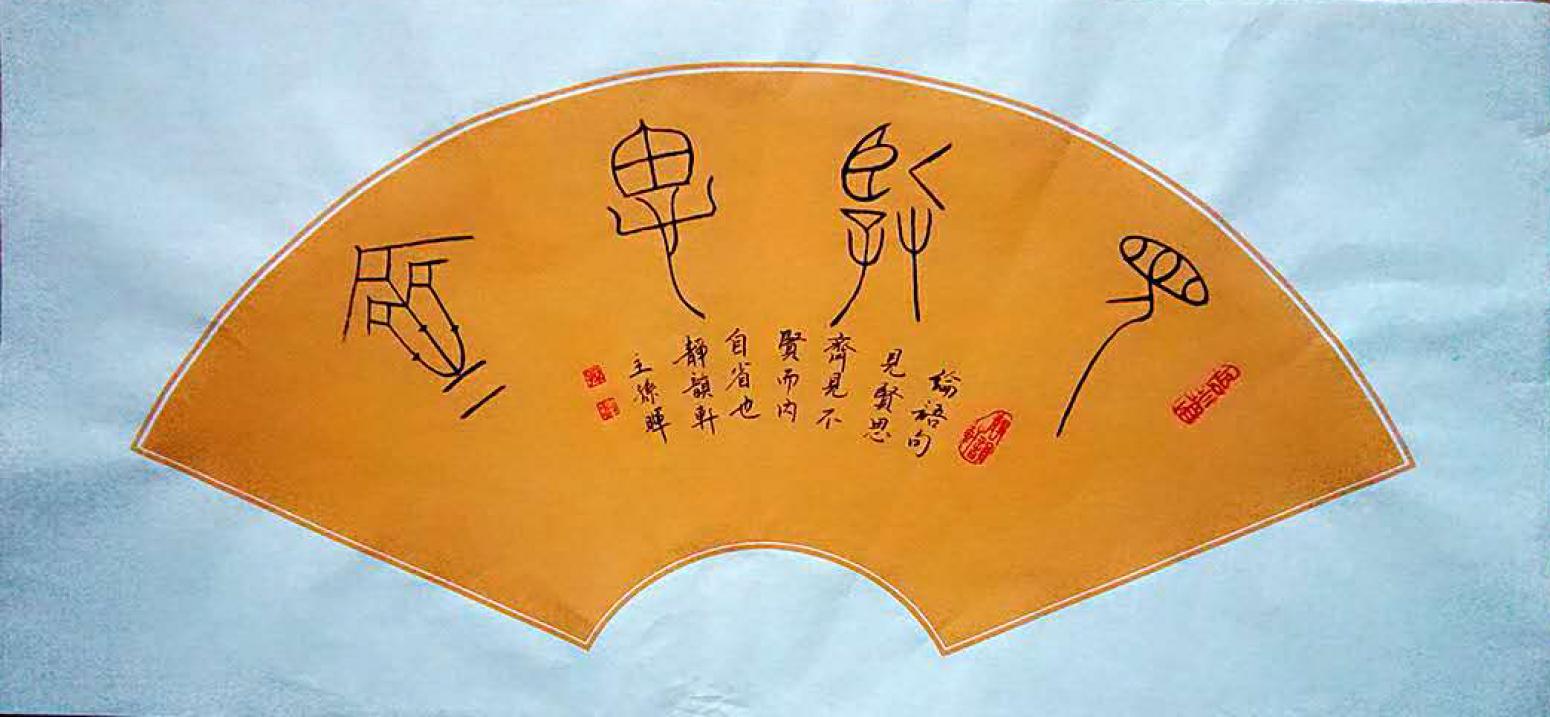 見賢思齊
論語句
見賢思
齊見不
賢而內
自省也
靜韻軒
主孫暉